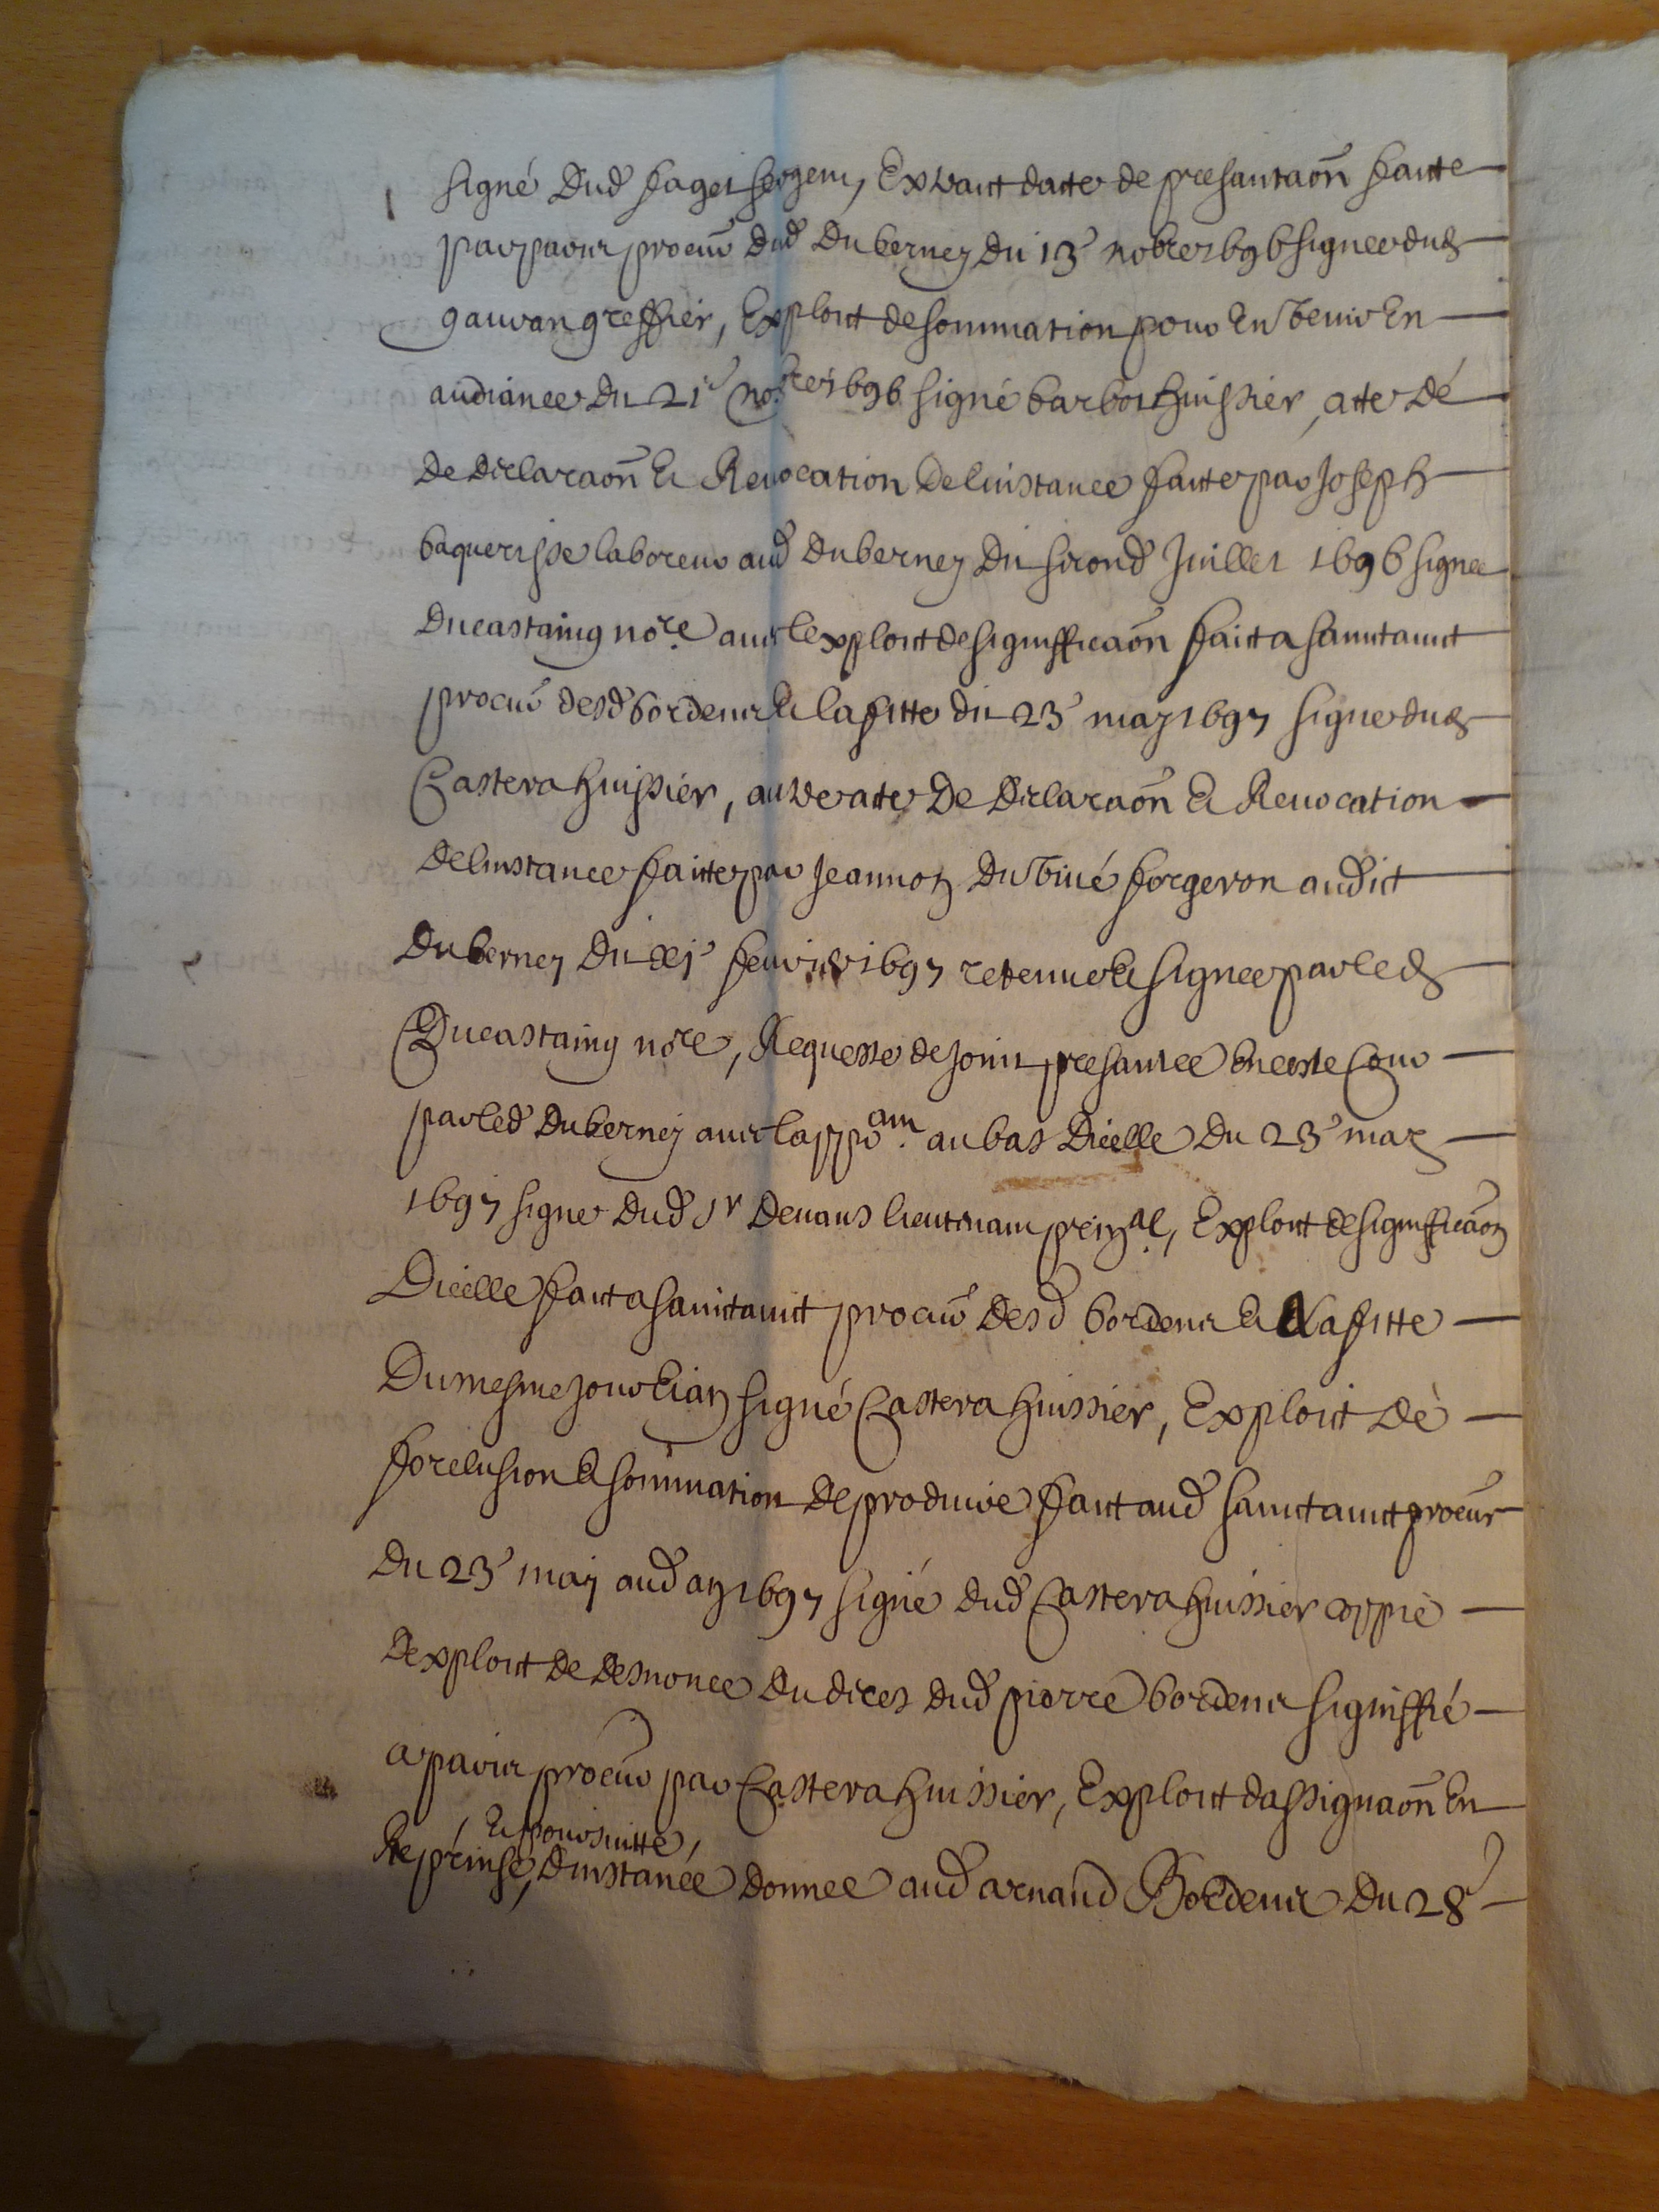 signé dud faget sergent, Extraict datte de presantaõn faitte
par pavin procur̃ dud duberney du 13e nobre 1696 signee dud
gauvan greffier, Exploict de sommation pour En venir En
audiance du 21e nore 1696 signé barbot huissier, atte dé
de declaraõn Et Revocation de linstance faitte par Joseph
baquerisse laboreur aud duberney du second Juillet 1696 signee
ducastaing nore avec lexploict de signifficaõn faict a sainctavit
procur̃ desd bordenir Et lafitte du 23e may 1697 signe dud
Castera huissier, autre atte de declaraõn Et Revocation
de linstance faitte par Jeannot du tiné forgeron audict
duberney du xje feuvrier 1697 retenue Et signee par led
Ducastaing nore, Requeste de Joint presantee En ceste Cour
par led duberney avec lappoam. au bas dicelle du 23e may
1697 signe dud sr devans lieutenant prinpal, Exploict de signifficaõn
Dicelle faict a sainctavit procur̃ desd bordenir Et Lafitte
Du mesme Jour Et an signé Castera huissier, Exploict dé
forclusion Et sommation de produire faict aud sainctavit procur̃
du 23e may aud an 1697 signé dud Castera huissier coppie
dexploict de desnonce du deces dud pierre bordenir signiffié
a pavin procur̃ par Castera huissier, Exploict dassignaõn En
Et poursuitte,
Reprinse, dinstance donnee aud arnaud Bordenir du 28e